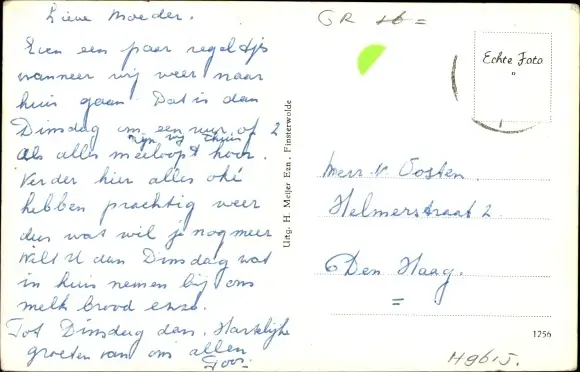 Lieve Moeder.
Even een paar regeltjs
wanneer wij weer naar
huis gaan. Dat is dan
Dimsdag om een uur of 2
zijn wij thuis
als alles meeloopt hoor.
Verder hier alles oké
hebben prachtig weer
dus wat wil je nog meer
Wilt U dan Dimsdag wat
in huis nemen bij ons
melk brood enzo.
Tot Dimsdag dan. Hartelijke
groeten van ons allen
Toos.
Uitg. H. Meijer Ezn., Finsterwolde
GR 16 =
Echte Foto
Oosten.
Helmerstraat 2
Den Haag.
=
1256
H9615.